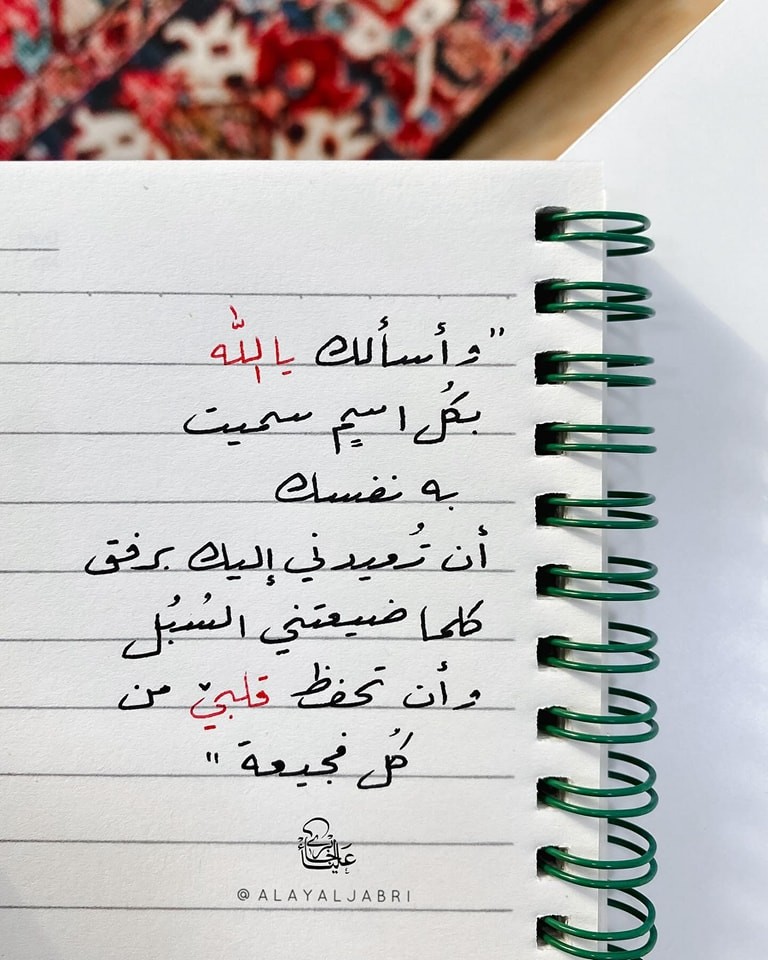 "وأسألك يا الله
بكُل اسمٍ سميت
به نفسك
أن تُعيدني إليك برفق
كلما ضيعتني السُبُل
وأن تحفظ قلبي من
كُل فجيعة"
@ALAYALJABRI